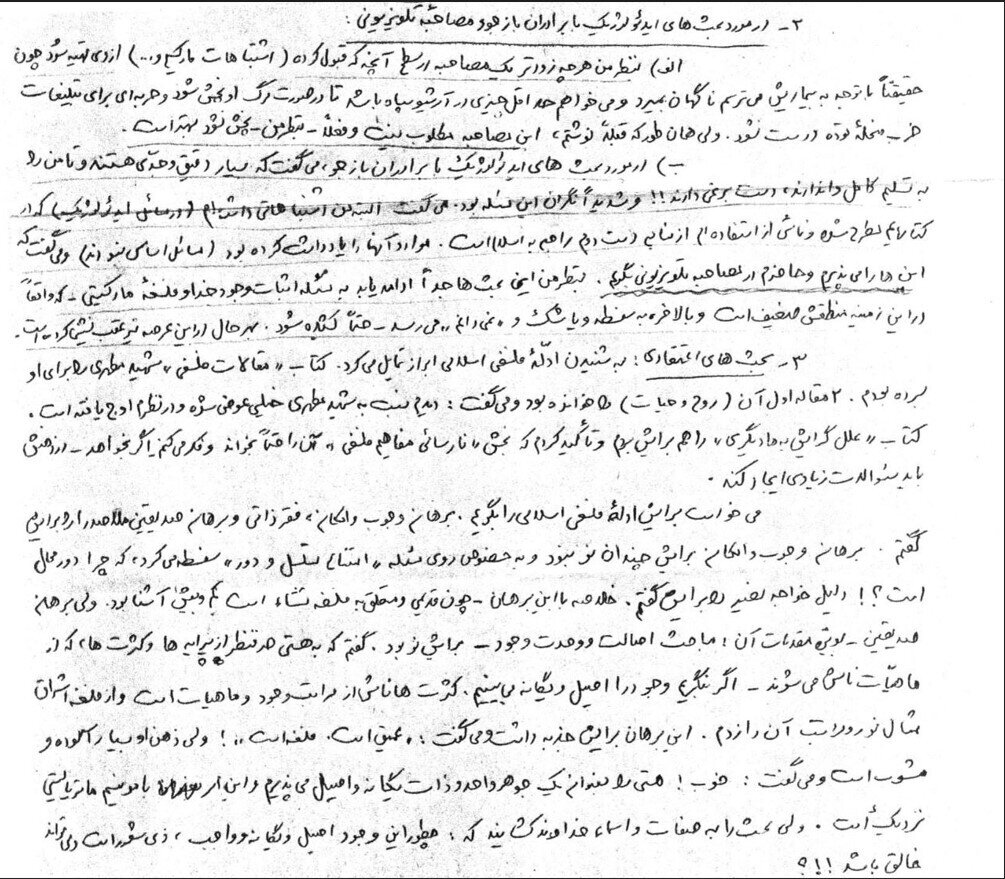 ۲- در مورد بحث‌های ایدئولوژیک با برادران بازجو و مصاحبهٔ تلویزیونی:
الف) بنظر من هر چه زودتر یک مصاحبه در سطح آنچه که قبول کرده (اشتباهات مارکسیسم و...) از وی تهیه شود چون
حقیقتاً با توجه به بیماریش می‌ترسم ناگهان بمیرد و می‌خواهم حداقل چیزی در آرشیو سپاه باشد تا در صورت مرگ او پخش شود و حربه‌ای برای تبلیغات
حزب منحلهٔ توده درست نشود. ولی همان طور که قبلاً نوشتم، این مصاحبه مطلوب نیست و فعلاً - بنظر من - پخش نشود بهتر است.
ب) در مورد بحث های ایدئولوژیک با برادران بازجو، می‌گفت که بسیار دقیق و جدی هستند و تا من را
به تسلیم کامل واندارند، دست برنمی‌دارند!! و شدیداً نگران این مسئله بود. می‌گفت البته من اشتباهاتی داشته‌ام (در مسائل ایدئولوژیک) که در
کتابهایم مطرح شده و ناشی از استفاده‌ام از منابع دست دوم راجع به اسلام است. موارد آنها را یادداشت کرده بود (مسائل اساسی نبودند) و می‌گفت که
این ها را می پذیرم و حاضرم در مصاحبه تلویزیونی بگویم. بنظر من این بحث‌ها جداً ادامه یابد به مسئله اثبات وجود خدا و فلسفهٔ مارکسیستی - که واقعاً
در این زمینه منطقش ضعیف است و بالاخره به سفسطه و یا شک و «نمی‌دانم» می‌رسد - حتماً کشیده شود. بهر حال در این عرصه نیز عقب نشینی کرده است.
۳- بحث های اعتقادی: به شنیدن ادلّهٔ فلسفی اسلامی ابراز تمایل می‌کرد. کتاب «مقالات فلسفی» شهید مطهری را برای او
برده بودم. ۲ مقاله اول آن (روح و حیات) را خوانده بود و می‌گفت: دیدم نسبت به شهید مطهری خیلی عوض شده و در نظرم اوج یافته است.
کتاب «علل گرایش به مادیگری» را هم برایش بردم و تأکید کردم که بخش «نارسائی مفاهیم فلسفی» آن را حتماً بخواند و فکر می‌کنم اگر بخواهد - در ذهنش
باید سئوالات زیادی ایجاد کند.
می خواست برایش ادلهٔ فلسفی اسلامی را بگویم. برهان وجوب و امکان، فقر ذاتی و برهان صدیقین ملاصدرا را برایش
گفتم. برهان وجوب و امکان برایش چندان نو نبود و به خصوص روی مسئله «امتناع تسلسل و دور» سفسطه می‌کرد، که چرا دور محال
است؟! دلیل خواجه نصیر را برایش گفتم. خلاصه با این برهان - چون قدیمی و متعلق به فلسفه مشاء است کم و بیش آشنا بود. ولی برهان
صدیقین - بویژه مقدمات آن: مباحث اصالت و وحدت وجود - برایش نو بود. گفتم که به هستی صرفنظر از پیرایه ها و کثرت ها، که از
ماهیّات ناشی می‌شوند - اگر بنگریم وجود را اصیل و یگانه می‌بینیم. کثرت ها ناشی از مراتب وجود و ماهیات است و از فلسفه اشراق
مثال نور و مراتب آن را زدم. این برهان برایش جذبه داشت و می‌گفت: «عمیق است. فلسفه است»! ولی ذهن او بسیار آلوده و
مشوب است و می‌گفت: خوب! هستی را بعنوان یک جوهر واحد و ذات یگانه و اصیل می پذیرم و این امر با مونیسم ماتریالیستی
نزدیک است. ولی بحث را به صفات و اسماء خداوند کشانید که: چطور این وجود اصیل و یگانه و واجب، ذی شعور است و می‌تواند
خالق باشد!!؟